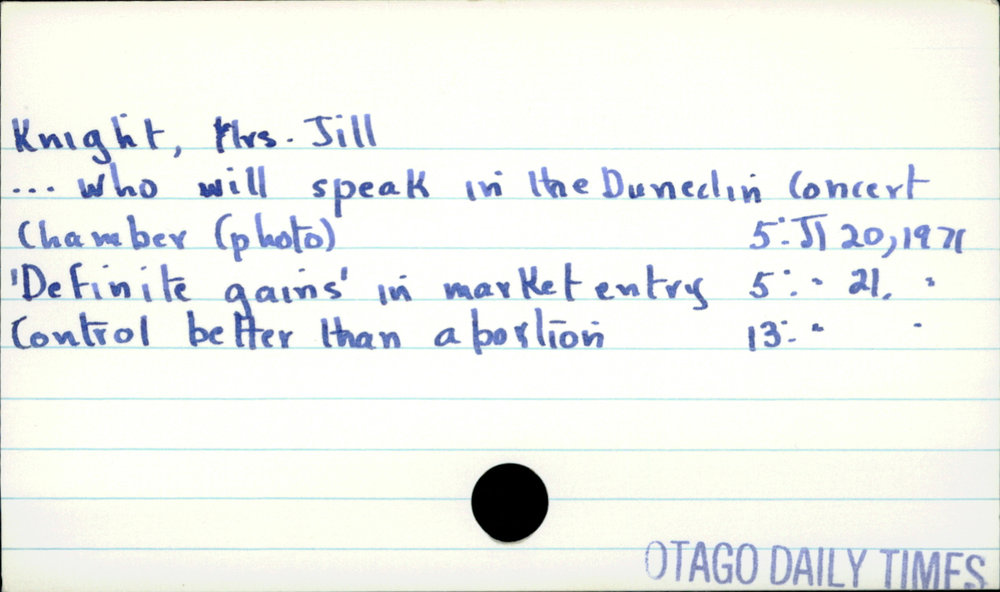 Knight, Mrs. Jill
... who will speak in the Dunedin Concert
Chamber (photo) 5: Jl 20, 1971
'Definite gains' in market entry 5: " 21, "
Control better than abortion 13: " "
OTAGO DAILY TIMES